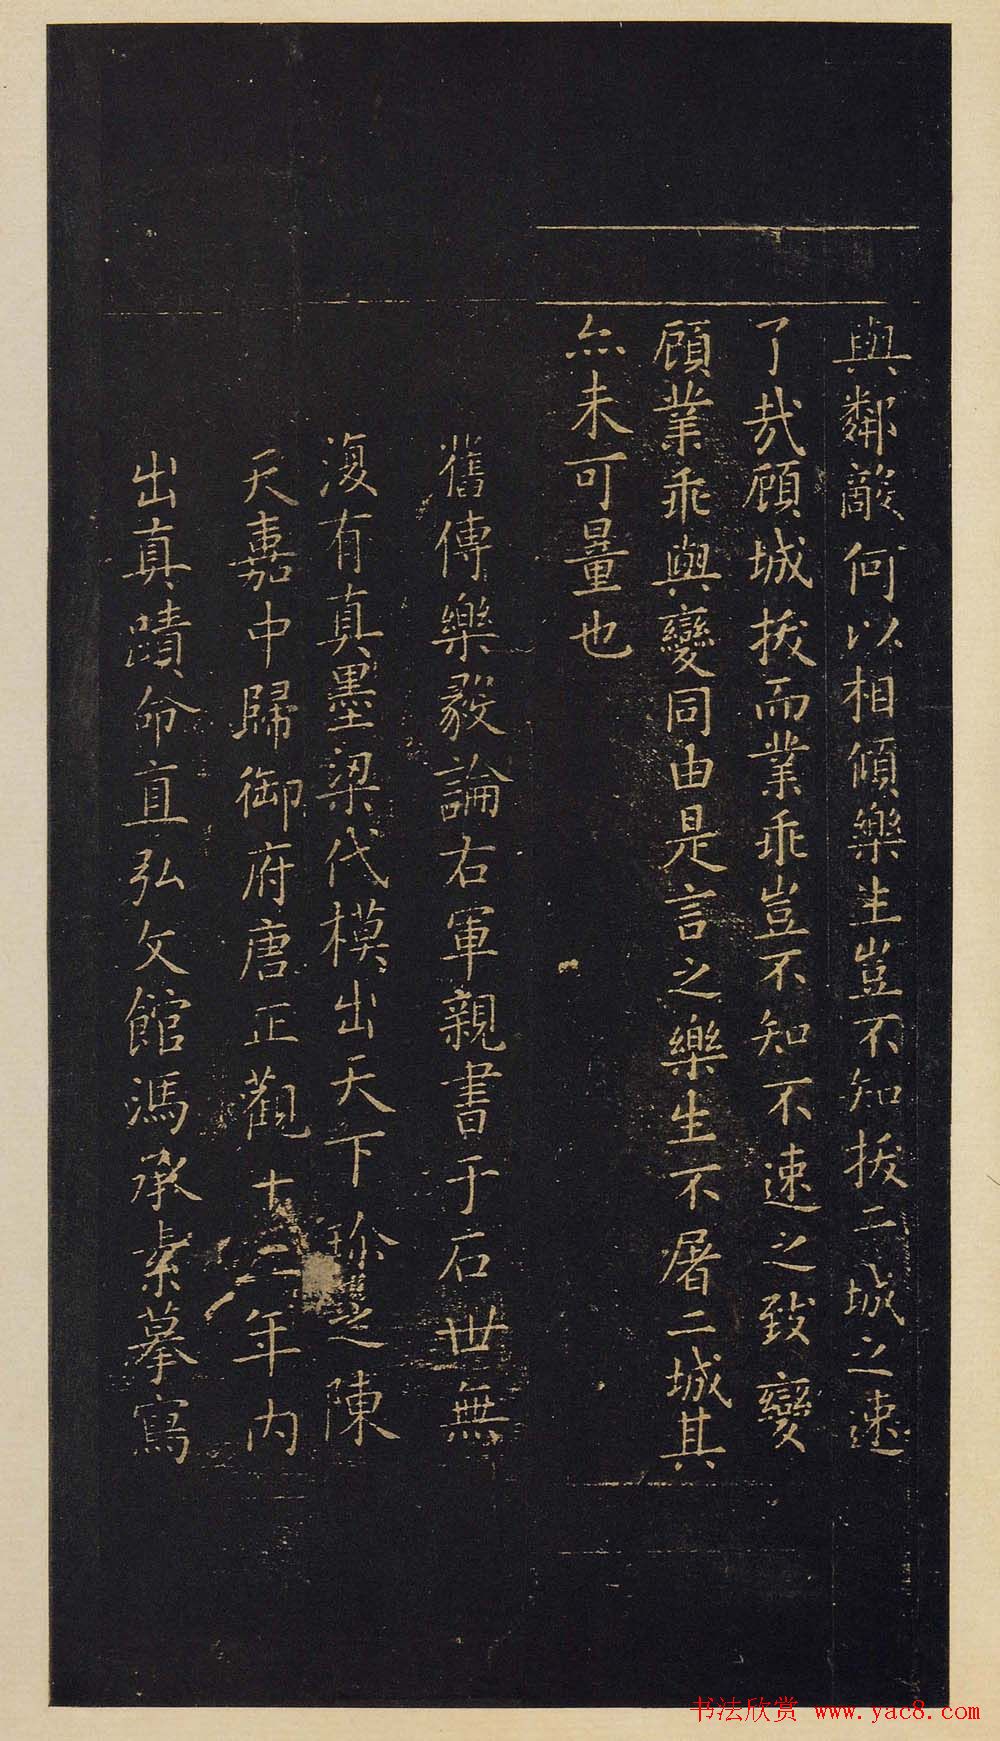 與鄰敵何以相傾樂生豈不知拔二城之速
了㢤顧城拔而業乖豈不知不速之致變
顧業乖與變同由是言之樂生不屠二城其
亦未可量也
舊傳樂毅論右軍親書于石世無
復有真墨梁代模出天下珍之陳
天嘉中歸御府唐正觀十三年內
出真蹟命直弘文館馮承素摹寫
书法欣赏 www.yac8.com